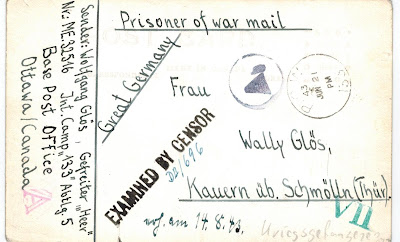 Prisoner of war mail
Great Germany
Frau
Wally Glös,
Kauern üb. Schmölln (Thür.)
Sender: Wolfgang Glös, Gefreiter „Heer“
Nr.: ME 32516 Int. Camp „133“ Abtlg. 5
Base Post Office
Ottawa/Canada
EXAMINED BY CENSOR
DB/696
2
PM
JUN 21
VII
A
am 14.8.43.
Kriegsgefangenen